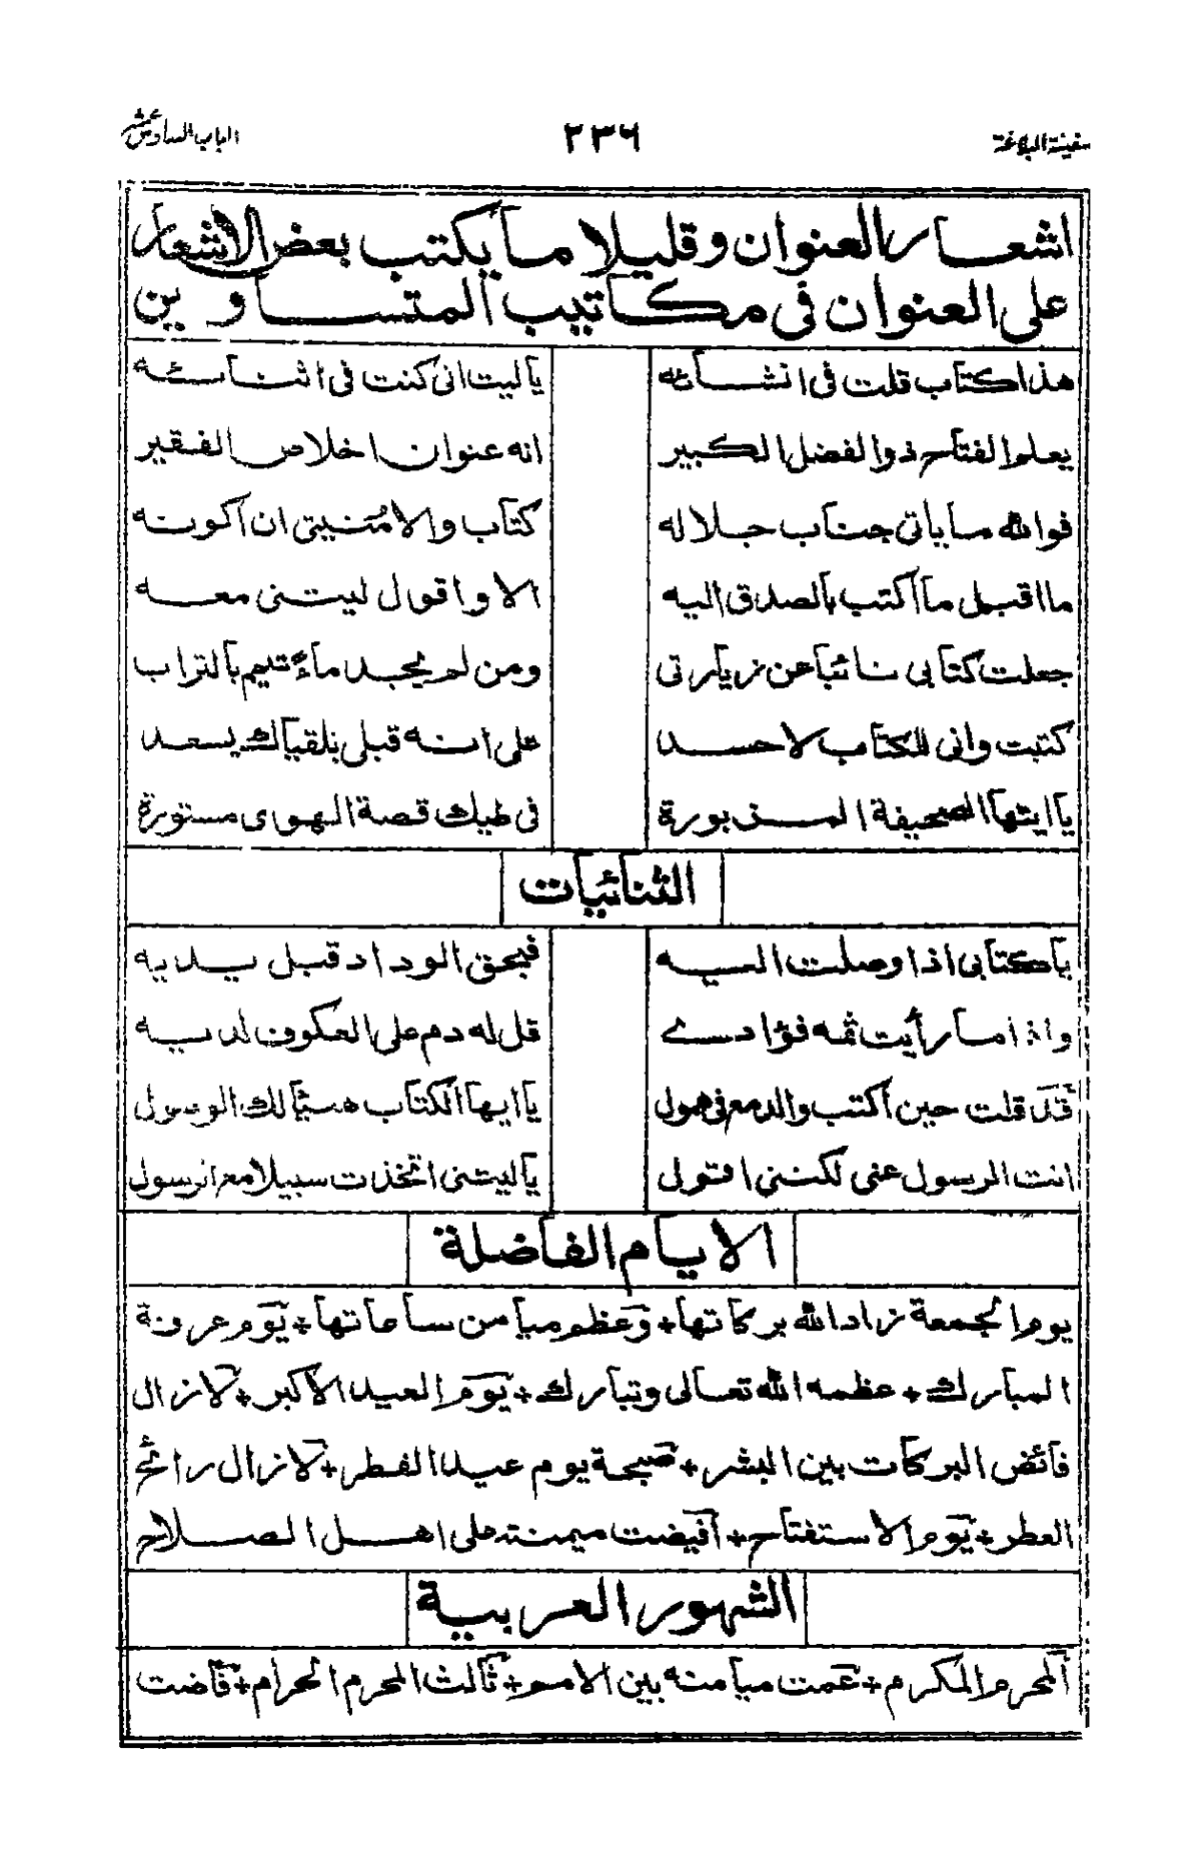 سفينة البلاغة ٢٣٦ الباب السادس عشر
اشعار العنوان وقليلا ما يكتب بعض الاشعار
على العنوان فى مكاتيب المتساوين
هذا كتاب قلت فى انشائه ياليت انى كنت فى اثنائه
يعلم الفتاح ذو الفضل الكبير انه عنوان اخلاص الفقير
فوالله ما ياتى جناب جلاله كتاب والا مُنيتى ان اكونه
ما اقبل ما اكتب بالصدق اليه الا واقول ليتنى معه
جعلت كتابى نائبا عن زيارتى ومن لم يجد ماءً تيمم بالتراب
كتبت وانى للكتاب لاحسد على انه قبلى بلقياك يسعد
يا ايتها الصحيفة المزبورة فى طيك قصة الهوى مستورة
الثنائيات
ياكتابى اذا وصلت اليه فبحق الوداد قبل يديه
واذا ما رأيت ثمه فؤادے قل له دم على العكوف لديه
قَد قلت حين اكتب والدمع فى همول يا ايها الكتاب هنيئا لك الوصول
انت الرسول عنى لكننى اقولى ياليتنى اتخذت سبيلا مع الرسول
الايام الفاضلة
يوم الجمعة زاد الله بركاتها + وعظم ميامن ساعاتها + يوم عرفة
المبارك + عظمه الله تعالى وتبارك + يوم العيد الاكبر + لا زال
فائض البركات بين البشر + صبحة يوم عيد الفطر + لا زال رائح
العطر + يوم الاستفتاح + أفيضت ميمنته على اهل الصلاح
الشهور العربية
ألمحرم المكرم + عمت ميامنه بين الامم + ثالث المحرم الحرام + فاضت